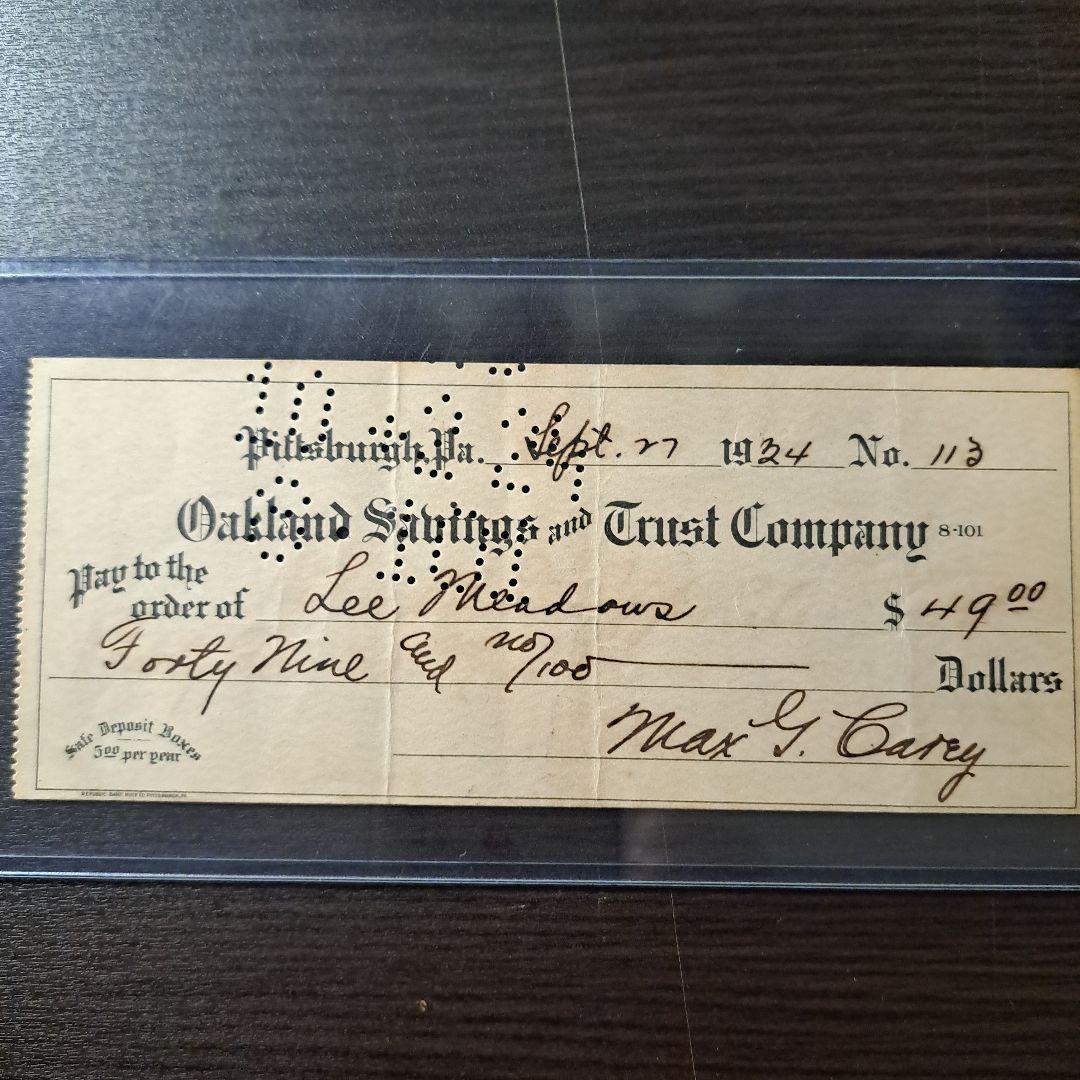 Pittsburgh, Pa. Sept. 27 1924 No. 113
Oakland Savings and Trust Company 8-101
Pay to the order of Lee Meadows $ 49 00
Forty Nine and no/100 Dollars
Max G. Carey
Safe Deposit Boxes
5 00 per year